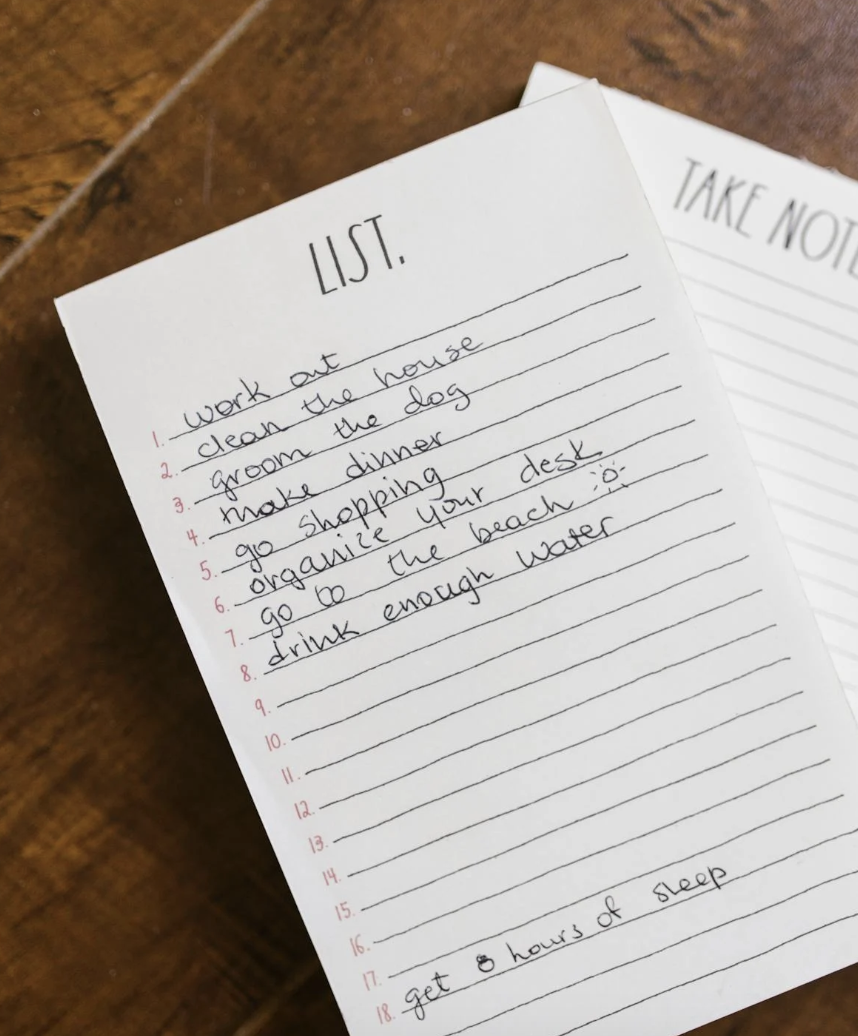 LIST.
1. work out
2. clean the house
3. groom the dog
4. make dinner
5. go shopping
6. organize your desk
7. go to the beach
8. drink enough water
9.
10.
11.
12.
13.
14.
15.
16.
17.
18. get 8 hours of sleep
TAKE NOTE